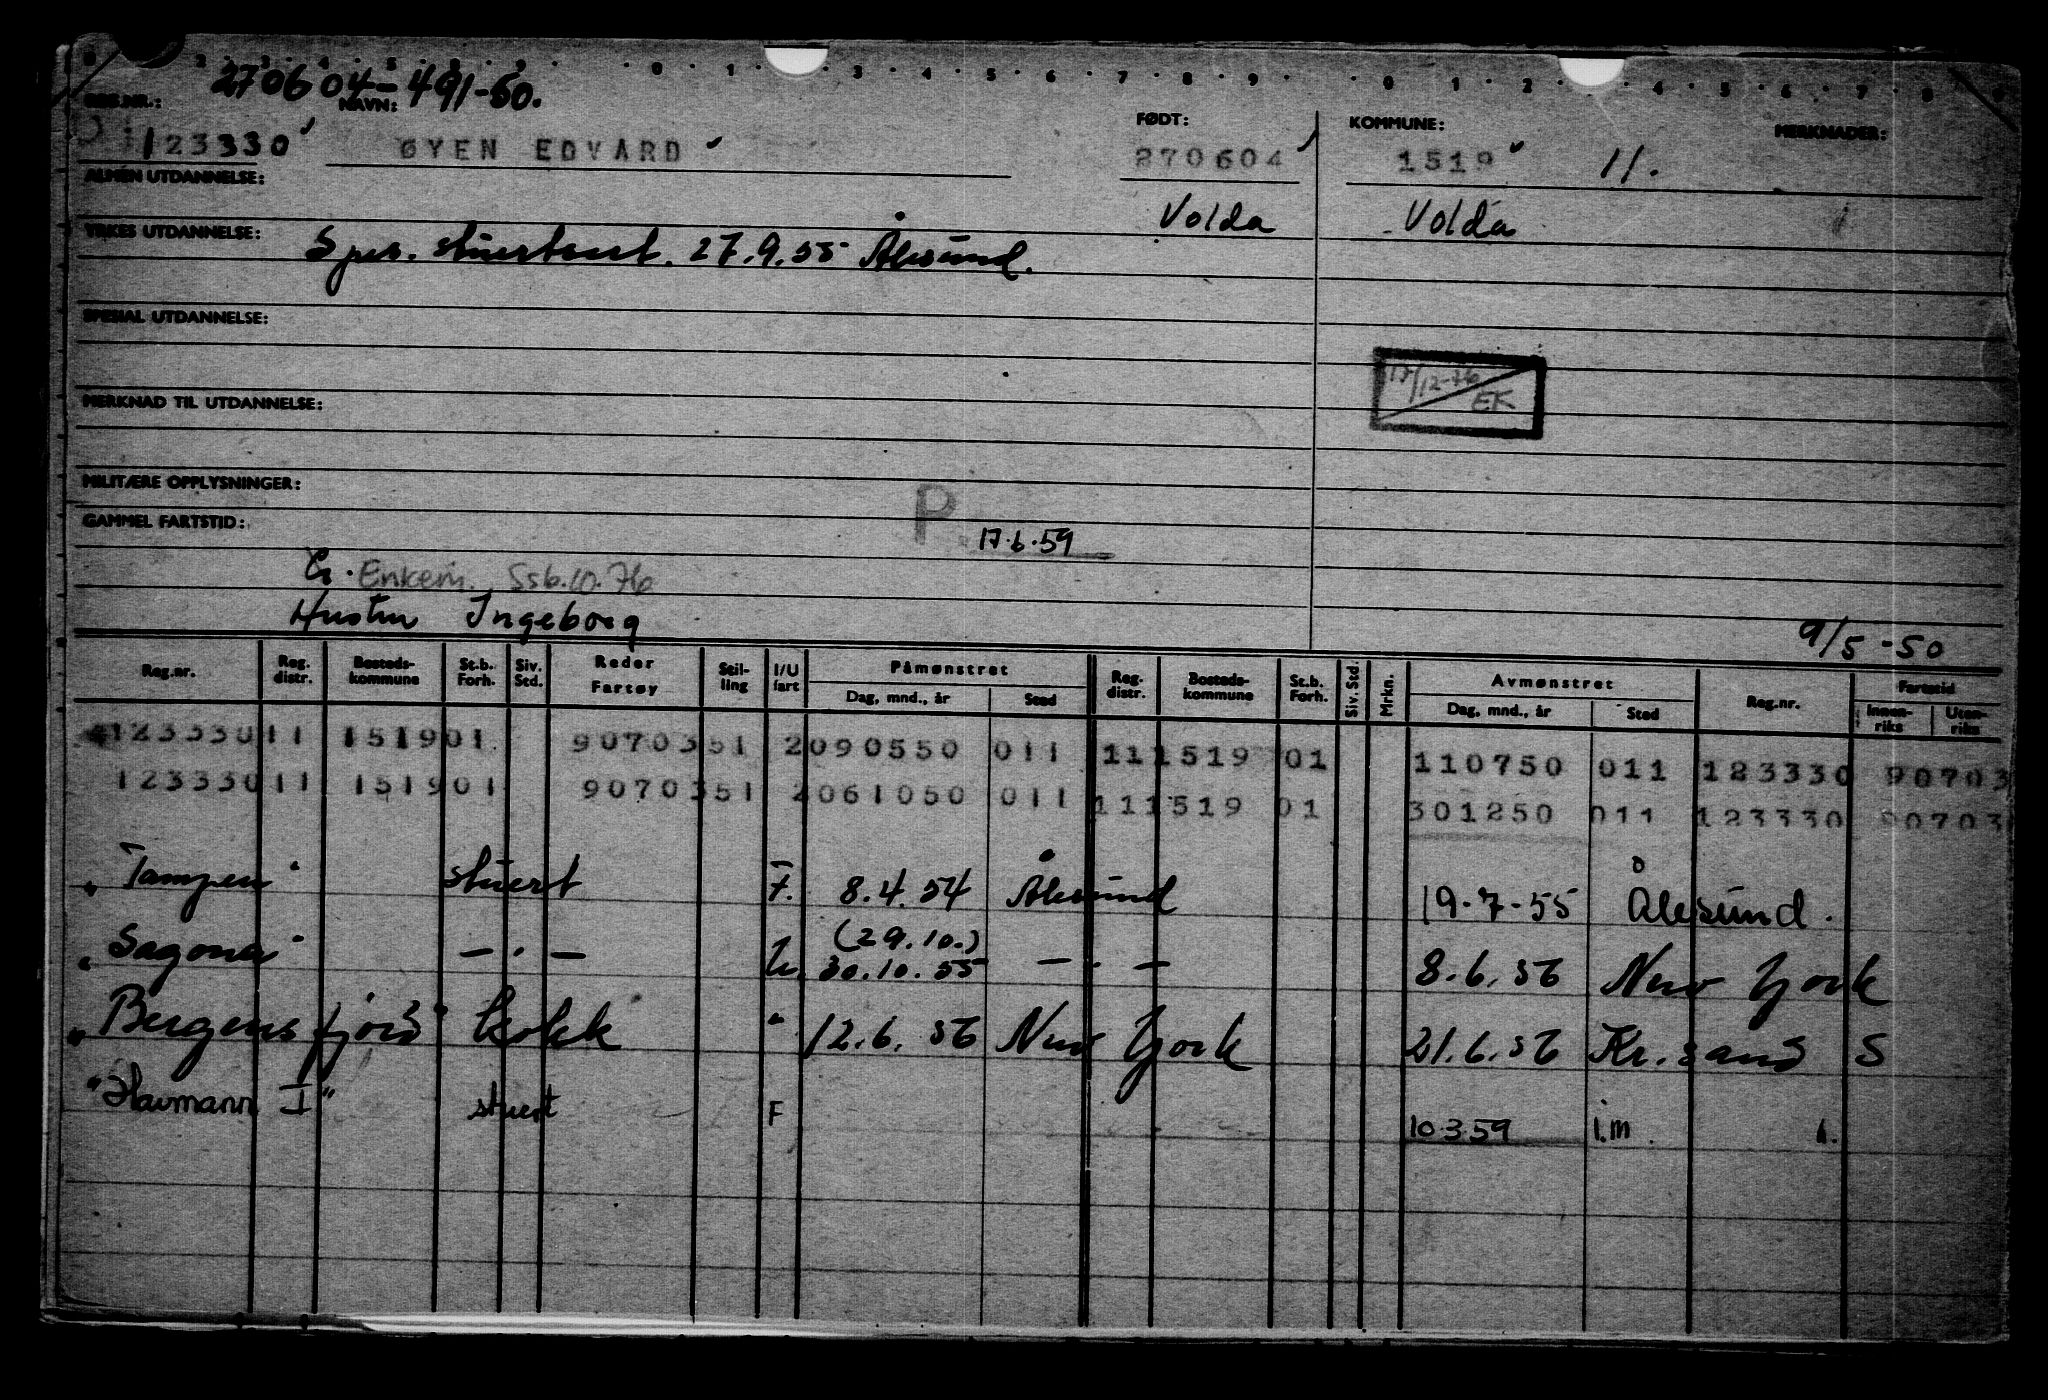 270604-491-50.
REG.NR.: NAVN: FØDT: KOMMUNE: MERKNADER:
123330 ØYEN EDVARD 270604 1519 11.
ALMEN UTDANNELSE: Volda Volda
YRKES UTDANNELSE: Spes. stuertsert. 27.9.55 Ålesund.
SPESIAL UTDANNELSE:
17/12-76 EK
MERKNAD TIL UTDANNELSE:
MILITÆRE OPPLYSNINGER:
P
GAMMEL FARTSTID:
17.6.59
G. Enkem. Ssb.10.76
Hustru Ingeborg
9/5-50
Reg.nr. Reg. distr. Bosteds-kommune St.b. Forh. Siv. Std. Reder Fartøy Stil-ling I/U fart Påmønstret Dag, mnd., år Sted Reg. distr. Bosteds-kommune St.b. Forh. Siv. Std. Mrkn. Avmønstret Dag, mnd., år Sted Reg.nr. Fartstid Innen-riks Uten-riks
123330 11 1519 01 9070351 2 090550 011 11 1519 01 110750 011 123330 90703
123330 11 1519 01 9070351 2 061050 011 11 1519 01 301250 011 123330 90703
"Tampen" stuert F. 8.4.54 Ålesund 19-7-55 Ålesund.
"Sagona" — . — U. (29.10.) 30.10.55 — . — 8.6.56 New York
"Bergensfjord" kokk " 12.6.56 New York 21.6.56 Kr.sand S
"Havmann I" stuert F 10.3.59 i.m.